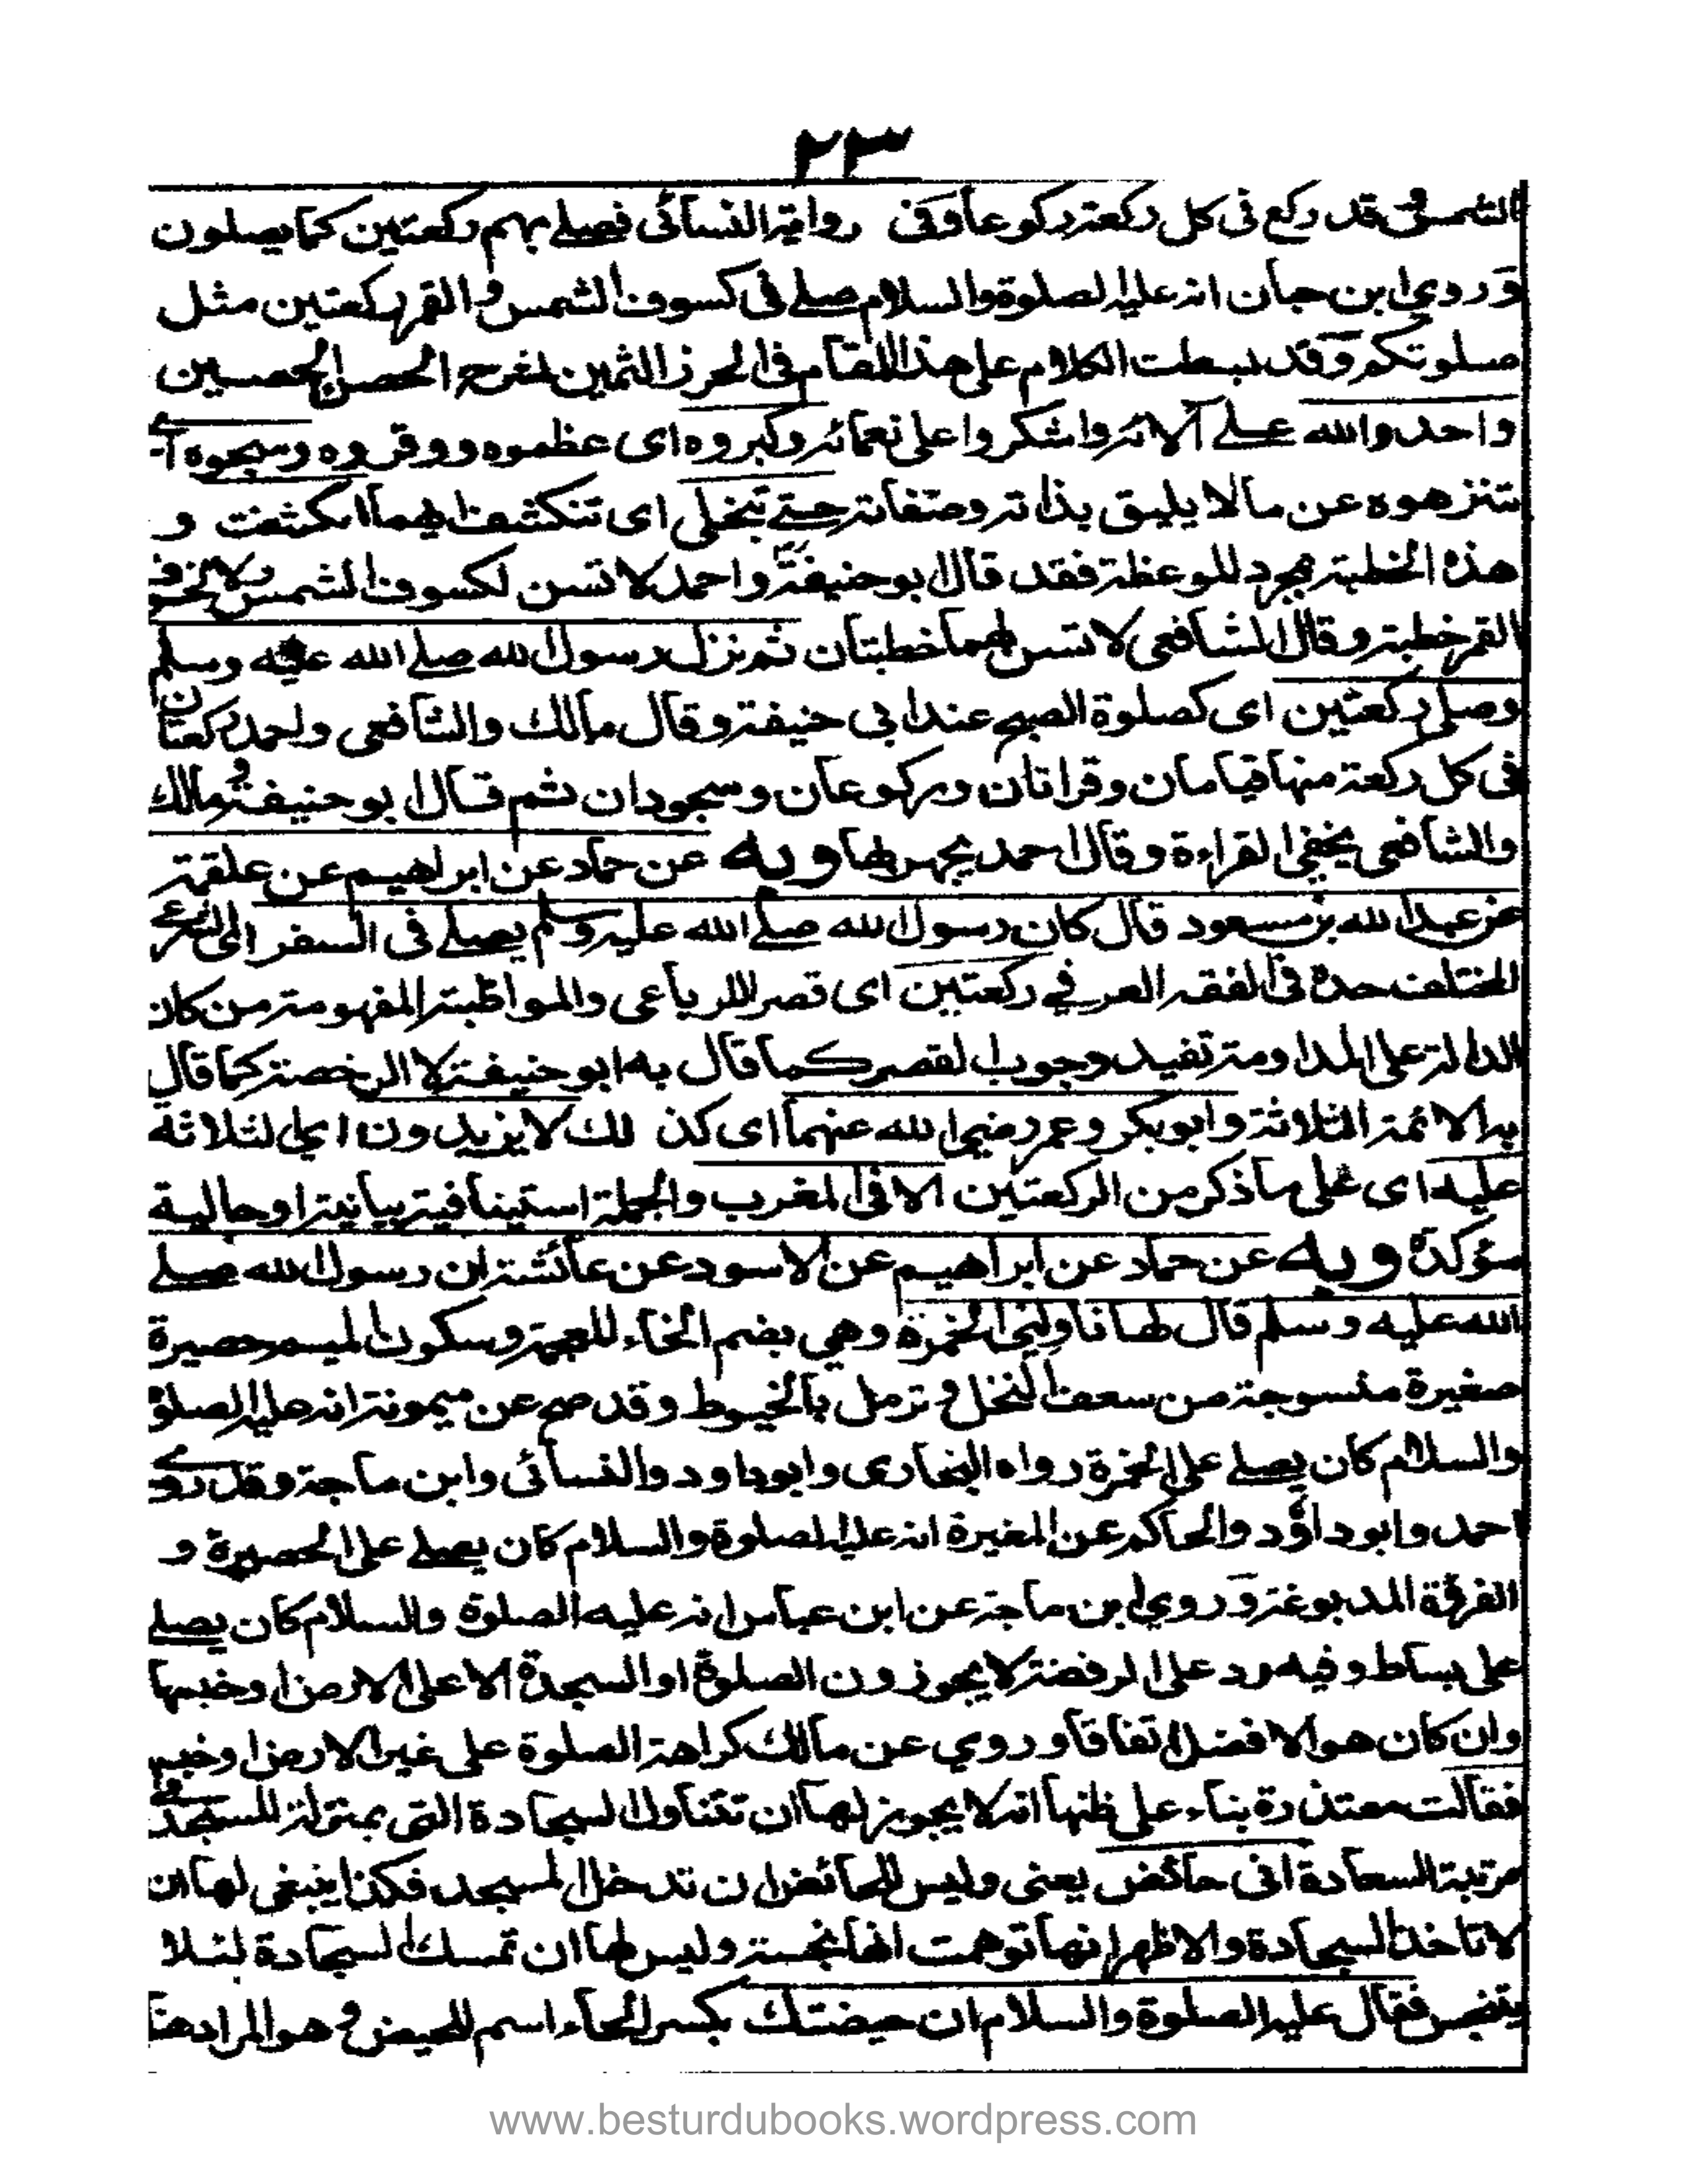 ٢٣
الشمس قد ركع فى كل ركعة ركوعا وفى رواية النسائى فصلے بهم ركعتين كما يصلون
وروى ابن حبان انه عليه الصلوة والسلام صلے فى كسوف الشمس والقمر ركعتين مثل
صلوتكم وقد بسطت الكلام على هذا المقام فى الحرز الثمين لشرح الحصن الحصين
واحدوا الله علے آلائه واشكروا على نعمائه وكبروه اى عظموه ووقروه وسبحوه اے
تنزهوه عن مالا يليق بذاته وصفاته حتے تنجلى اى تنكشف ايهما انكشفت و
هذه الخطبة مجرد للموعظة فقد قال ابو حنيفة واحمد لا تسن لكسوف الشمس ولا لخسوف
القمر خطبة وقال الشافعى لا تسن لهما خطبتان ثم نزل رسول الله صلے الله عليه وسلم
وصلى ركعتين اى كصلوة الصبح عند ابى حنيفة وقال مالك والشافعى واحمد ركعتان
فى كل ركعة منها قيامان وقراتان وركوعان وسجودان ثم قال ابو حنيفة ومالك
والشافعى يخفى القراءة وقال احمد يجهر بها وبه عن حماد عن ابراهيم عن علقمة
عن عبد الله بن مسعود قال كان رسول الله صلے الله عليه وسلم يصلے فى السفر اى الشرعے
المختلف حده فى الفقه العرفے ركعتين اى قصر الرباعى والمواظبة المفهومة من كان
الدالة على المداومة تفيد وجوب القصر كما قال به ابو حنيفة لا الرخصة كما قال
به الائمة الثلاثة وابو بكر وعمر رضى الله عنهما اى كذلك لا يزيدون اى الثلاثة
عليه اى على ما ذكر من الركعتين الا فى المغرب والجملة استينافية بيانية او حالية
مؤكدة وبه عن حماد عن ابراهيم عن الاسود عن عائشة ان رسول الله صلے
الله عليه وسلم قال لها ناولينى الخمرة وهى بضم الخاء المعجمة وسكون الميم حصيرة
صغيرة منسوجة من سعف النخل و ترمل بالخيوط وقد صح عن ميمونة انه عليه الصلوة
والسلام كان يصلے على الخمرة رواه البخارى وابو داود والنسائى وابن ماجة وقد روے
احمد وابو داؤد والحاكم عن المغيرة انه عليه الصلوة والسلام كان يصلے على الحصيرة و
الفروة المدبوغة وروى ابن ماجة عن ابن عباس انه عليه الصلوة والسلام كان يصلے
على بساط وفيه رد على الرفضة لا يجوزون الصلوة او السجدة الا على الارض او خبسها
وان كان هو الافضل اتفاقا وروي عن مالك كراهة الصلوة على غير الارض او خبسه
فقالت معتذرة بناء على ظنها انه لا يجوز لها ان تتناول السجادة التى بمنزلة المسجد فى
مرتبة السعادة انى حائض يعنى وليس للحائض ان تدخل المسجد فكذا ينبغى لها ان
لا تاخذ السجادة والاظهر انها توهمت انها نجسة وليس لها ان تمسك السجادة لئلا
يتنجس فقال عليه الصلوة والسلام ان حيضتك بكسر الحاء اسم للحيض و هو المراد هنا
www.besturdubooks.wordpress.com